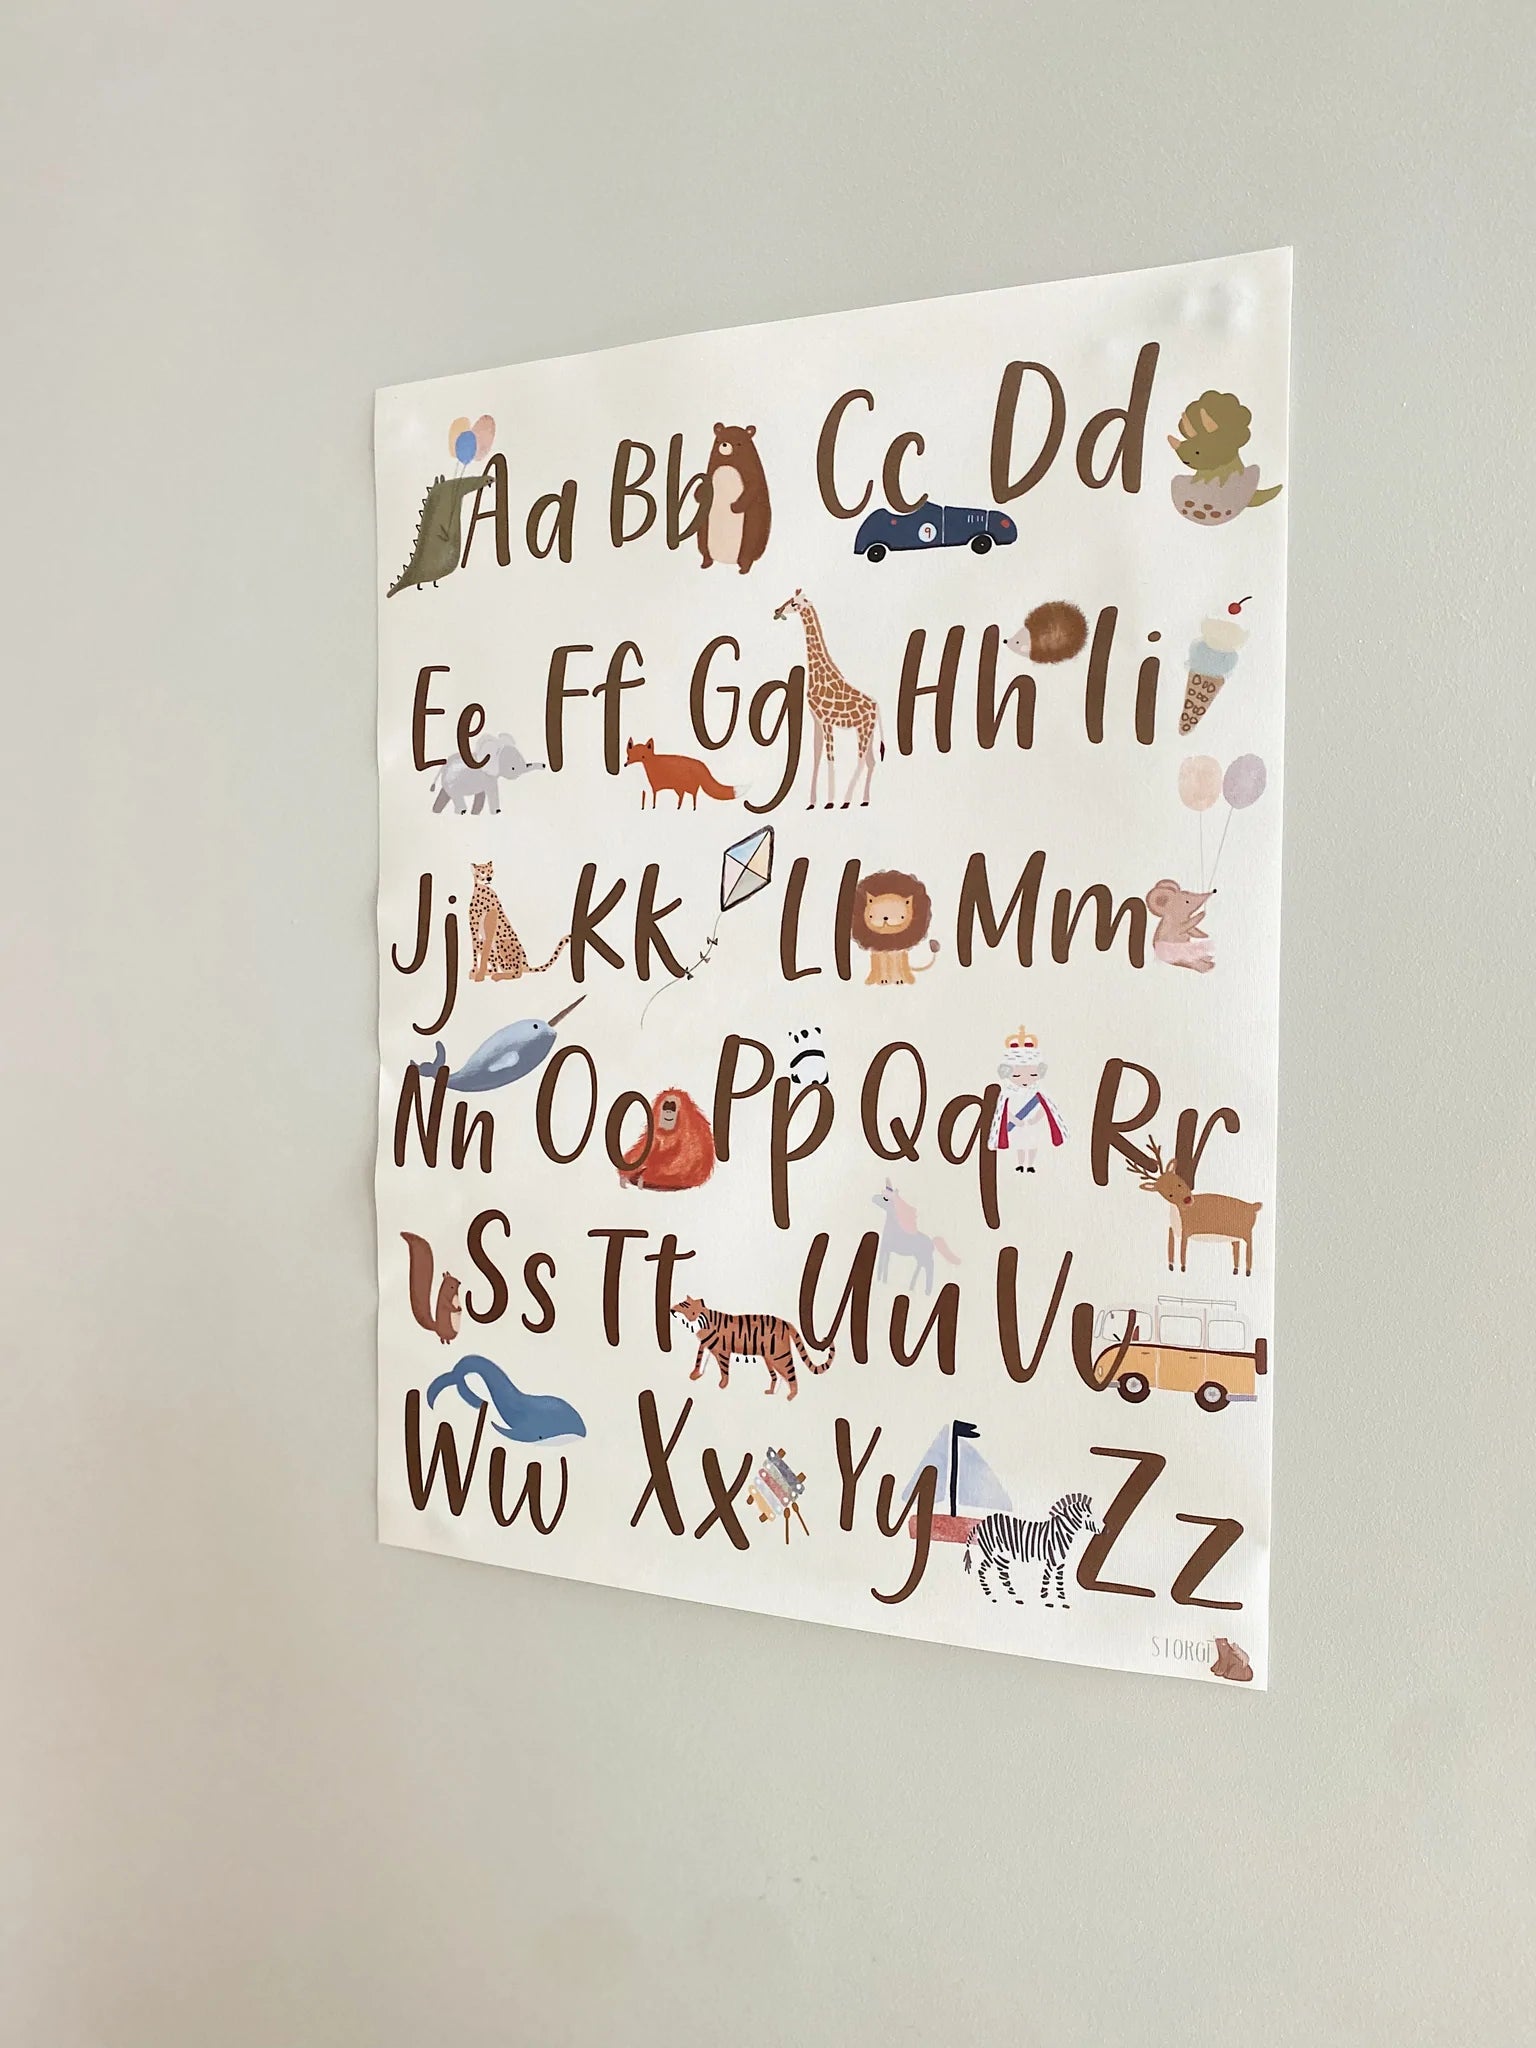 Aa Bb Cc Dd
9
Ee Ff Gg Hh Ii
Jj Kk Ll Mm
Nn Oo Pp Qq Rr
Ss Tt Uu Vv
Ww Xx Yy Zz